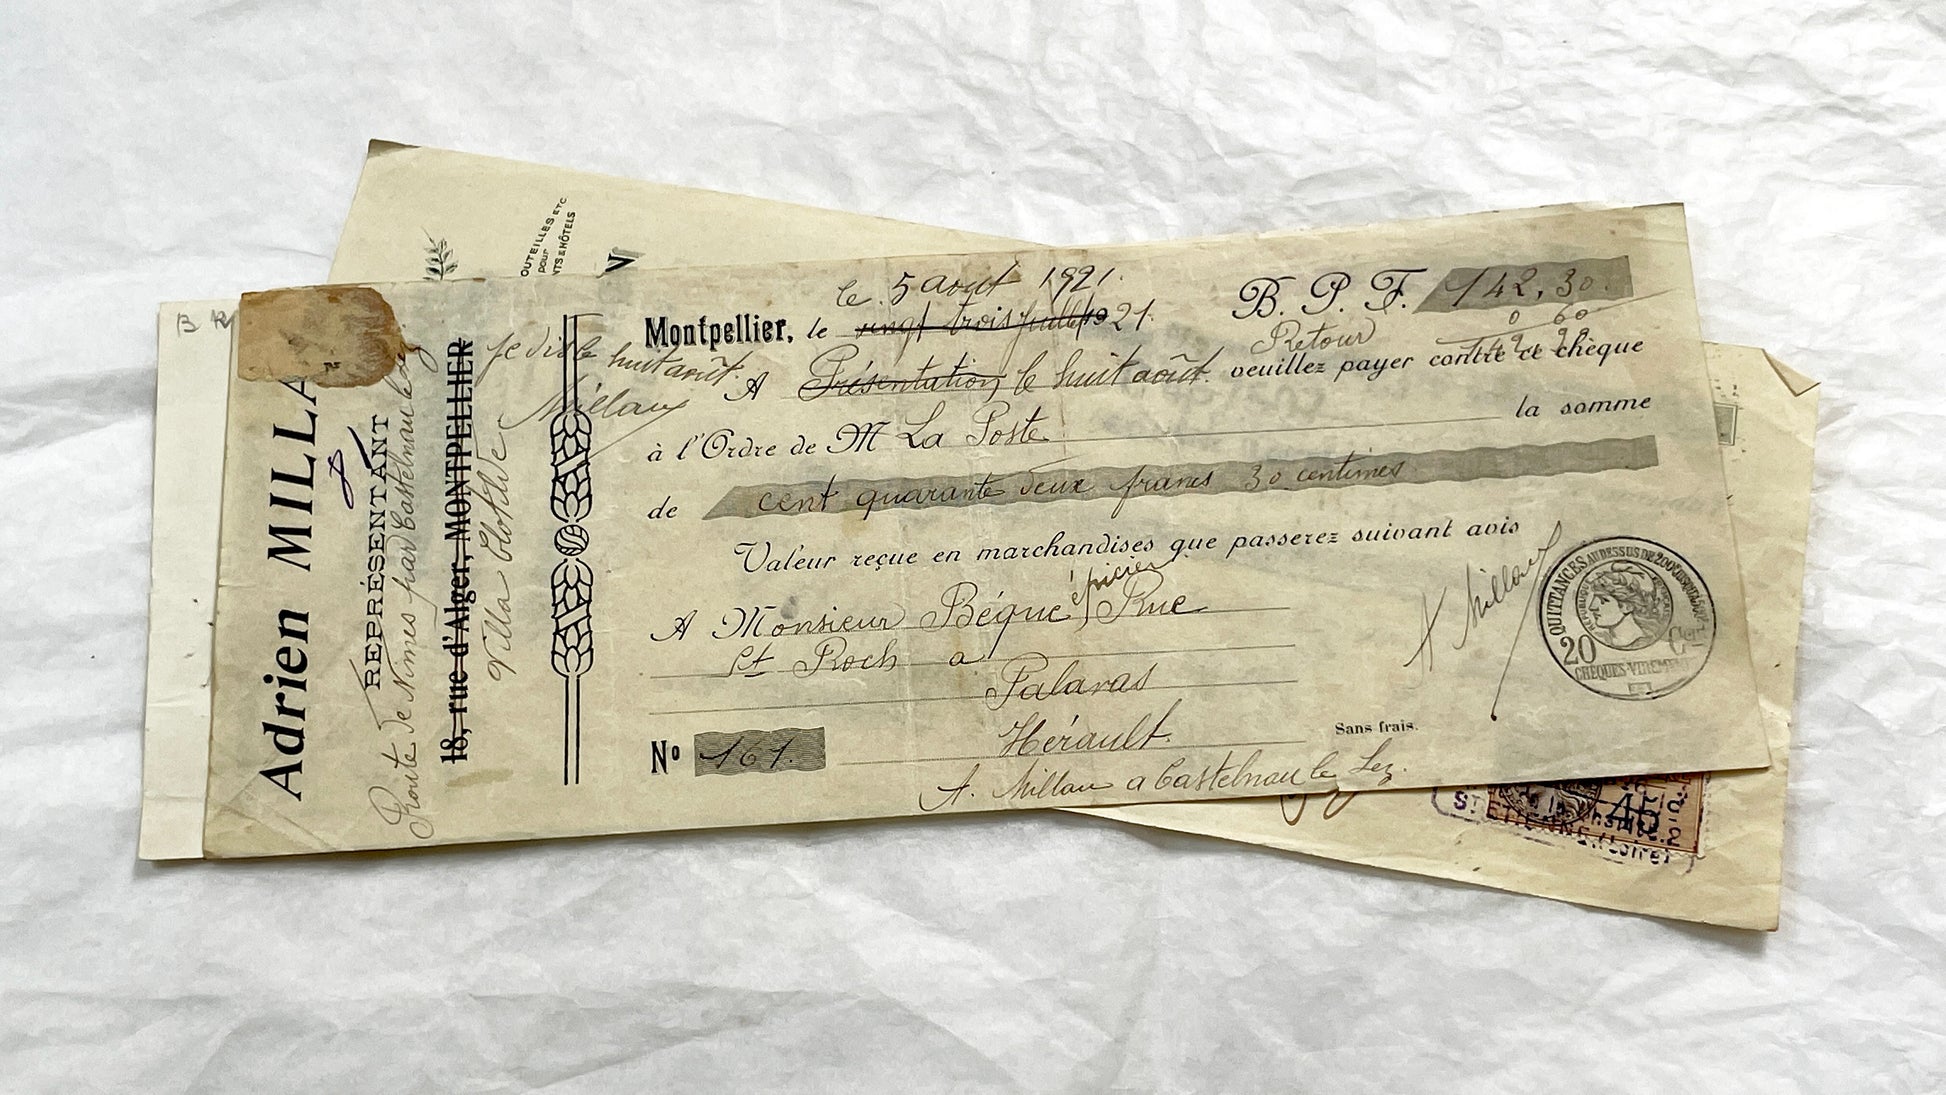 B
OUTEILLES ETC
POUR
NTS & HÔTELS
N
Adrien MILLA
REPRÉSENTANT
Route de Nîmes par Castelnau le Lez
18, rue d'Alger, MONTPELLIER
Villa Clotilde
je dis le huit août.
Millau
le 5 août 1921.
Montpellier, le vingt trois juillet 1921.
B. P. F. 142,30.
Retour 0 60
142 90
A Présentation, le huit août. veuillez payer contre ce chèque
à l'Ordre de M La Poste la somme
de cent quarante deux francs 30 centimes
Valeur reçue en marchandises que passerez suivant avis
A Monsieur Bégue épicier, Rue
St Roch a
Palavas
Hérault.
A Millau
QUITTANCES AU DESSUS DE 200
RÉPUBLIQUE
20 Cen
CHÈQUES-VIREMEN
No 161.
Sans frais.
A. Millau a Castelnau le Lez.
45
ST ETIENNE (Loire)